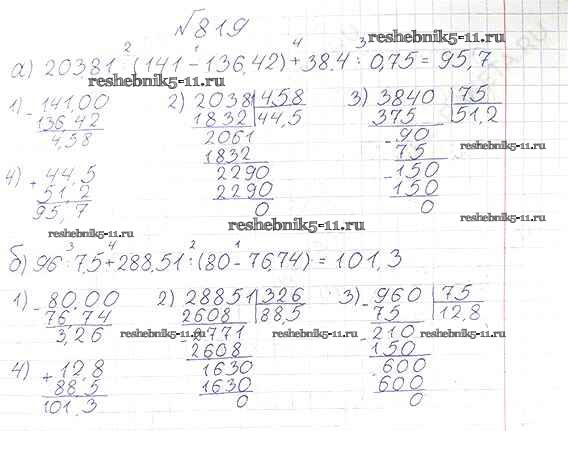 №819
reshebnik5-11.ru
а) 20381 : (141 - 136,42) + 38.4 : 0,75 = 95,7
2 1 4 3
reshebnik5-11.ru
1) - 141,00 2) 2038 458 3) 3840 75
136,42 1832 44,5 375 51,2
4,58 2061 - 90
1832 75
4) + 44.5 2290 - 150
51.2 2290 150
95,7 0 0
reshebnik5-11.ru
reshebnik5-11.ru
reshebnik5-11.ru
б) 96 : 7,5 + 288,51 : (80 - 76,74) = 101,3
3 4 2 1
1) - 80,00 2) 28851 326 3) - 960 75
76,74 2608 88,5 75 12,8
3,26 - 2771 - 210
2608 150
4) + 12.8 1630 - 600
88.5 1630 600
101.3 0 0
reshebnik5-11.ru
reshebnik5-11.ru